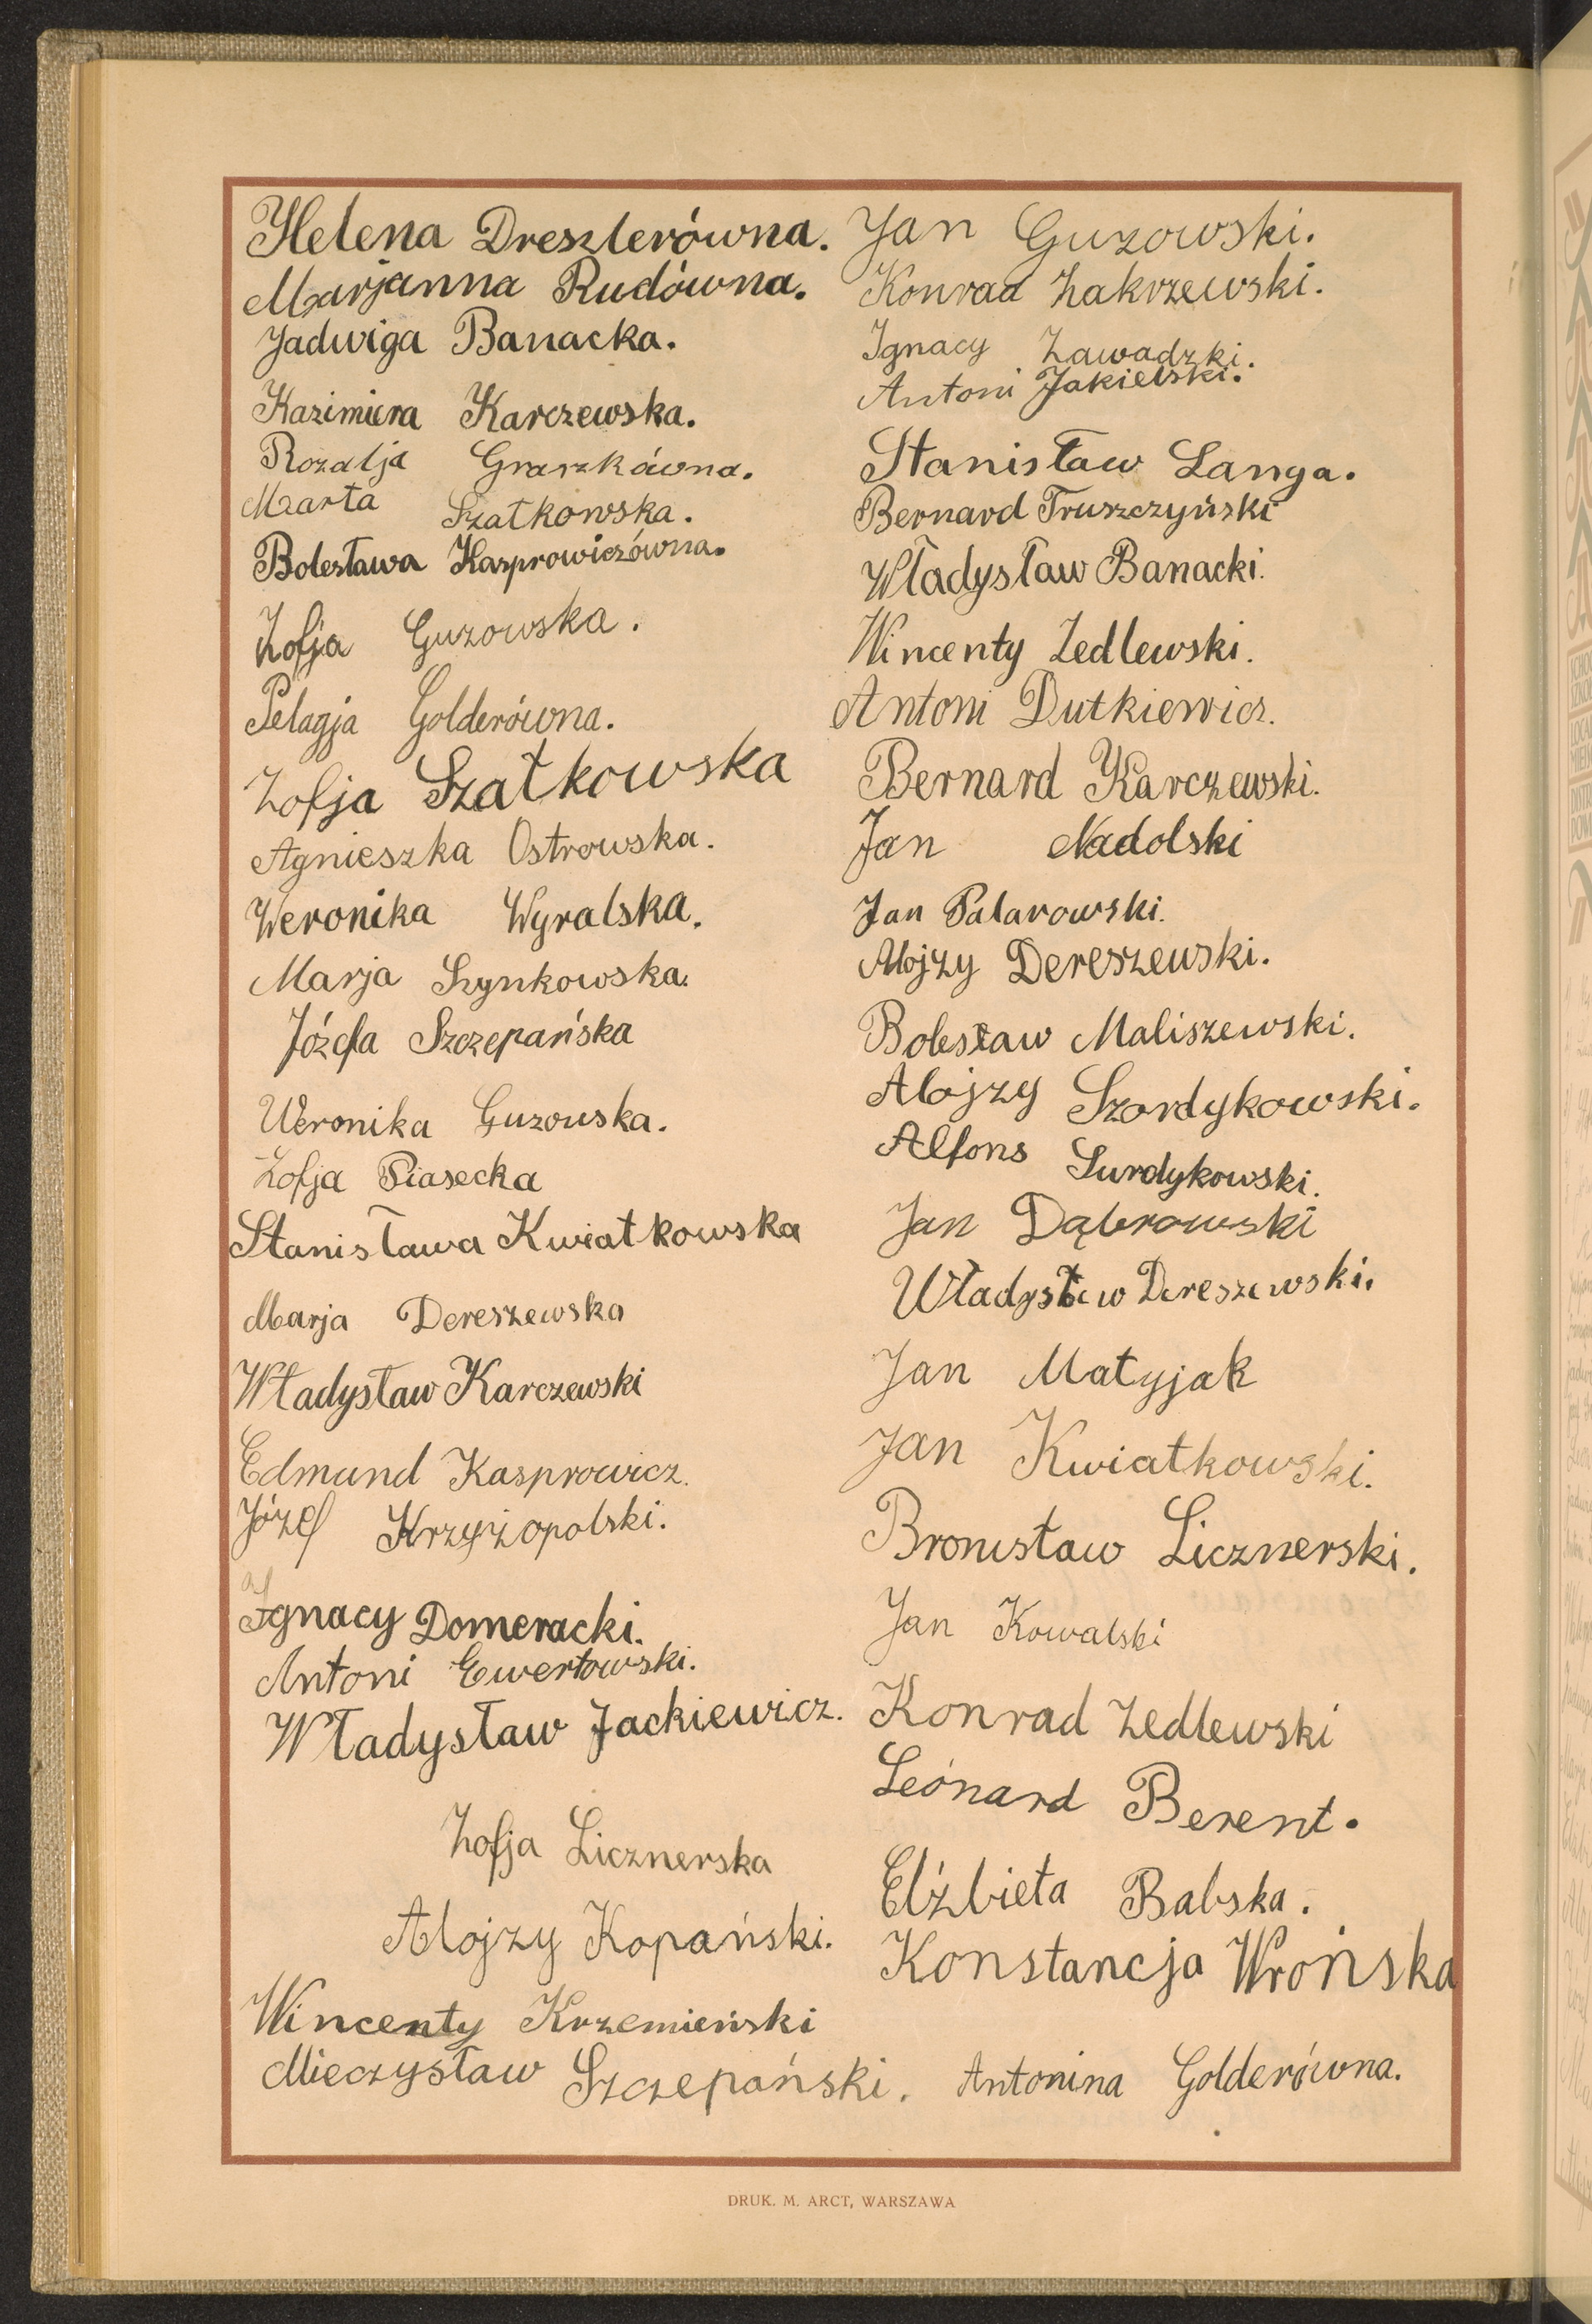 Helena Dreszlerówna.
Marjanna Rudówna.
Jadwiga Banacka.
Kazimiera Karczewska.
Rozalja Graszkówna.
Marta Szatkowska.
Bolesława Kasprowiczówna.
Zofja Guzowska.
Pelagja Golderówna.
Zofja Szatkowska
Agnieszka Ostrowska.
Weronika Wyralska.
Marja Szynkowska.
Józefa Szczepańska
Weronika Guzowska.
Zofja Piasecka
Stanisława Kwiatkowska
Marja Dereszewska
Władysław Karczewski
Edmund Kasprowicz.
Józef Krzyżopolski.
Ignacy Domeracki.
Antoni Ewertowski.
Władysław Jackiewicz.
Zofja Licznerska
Alojzy Kopański.
Wincenty Krzemieński
Mieczysław Szczepański.
Jan Guzowski.
Konrad Zakrzewski.
Ignacy Zawadzki.
Antoni Jakielski.
Stanisław Langa.
Bernard Truszczyński
Władysław Banacki.
Wincenty Zedlewski.
Antoni Dutkiewicz.
Bernard Karczewski.
Jan Nadolski
Jan Palarowski.
Alojzy Dereszewski.
Bolesław Maliszewski.
Alojzy Szordykowski.
Alfons Surdykowski.
Jan Dąbrowski
Władysław Dereszewski.
Jan Matyjak
Jan Kwiatkowski.
Bronisław Licznerski.
Jan Kowalski
Konrad Zedlewski
Leónard Berent.
Elżbieta Babska.
Konstancja Wrońska
Antonina Golderówna.
DRUK. M. ARCT, WARSZAWA